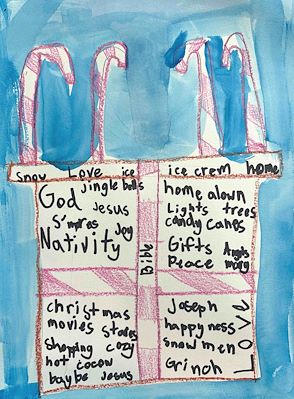 snow Love ice ice crem home
jingle bells
God Jesus
S'mores
Joy
Nativity
Bible
home alown
Lights trees
candy canes
Gifts Angls
Peace mary
christmas
movies
shopping cozy
hot cocow
baybe Jesus
Joseph
happyness
snow men
Grinch
LOVE